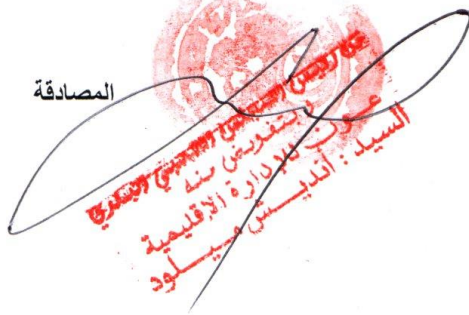 المصادقة
عن رئيس المجلس الشعبي البلدي
وبتفويض منه
عــون للإدارة الإقليمية
السيد : أنديــش ميــلود